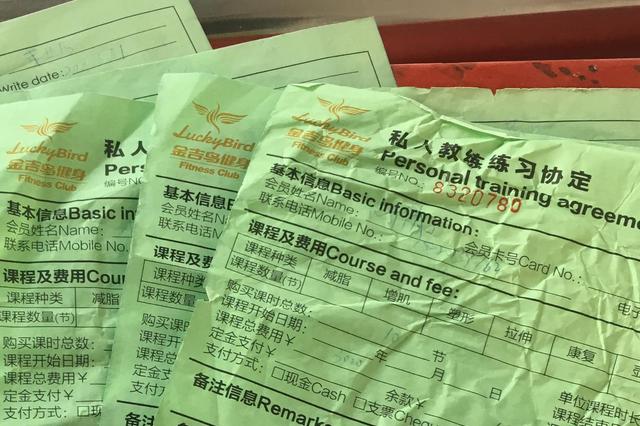 write date:
LuckyBird
金吉鸟健身
Fitness Club
私人
Personal
编号NO.
基本信息Basic info
会员姓名Name:
联系电话Mobile No.
课程及费用Cour
课程种类 减脂
课程数量(节)
购买课时总数:
课程开始日期:
课程总费用￥
定金支付￥
支付方式: □现
LuckyBird
金吉鸟健身
Fitness Club
基本信息
会员姓名
联系电话
课程及费用
课程种类
课程数量
购买课时
课程开始
课程总费
定金支付
支付方式
备注信
LuckyBird
金吉鸟健身
Fitness Club
私人教练练习协定
Personal training agreeme
编号NO.: 8320780
基本信息Basic information:
会员姓名Name:
联系电话Mobile No.: 会员卡号Card No.:
电子
课程及费用Course and fee:
课程种类 减脂 增肌 塑形 拉伸 康复
课程数量(节)
购买课时总数: 10 节
课程开始日期: 年 月 日
课程总费用￥
定金支付￥ 余款￥ 单位课时长
支付方式: □现金Cash □支票Chequ 课程结束日
备注信息Remark